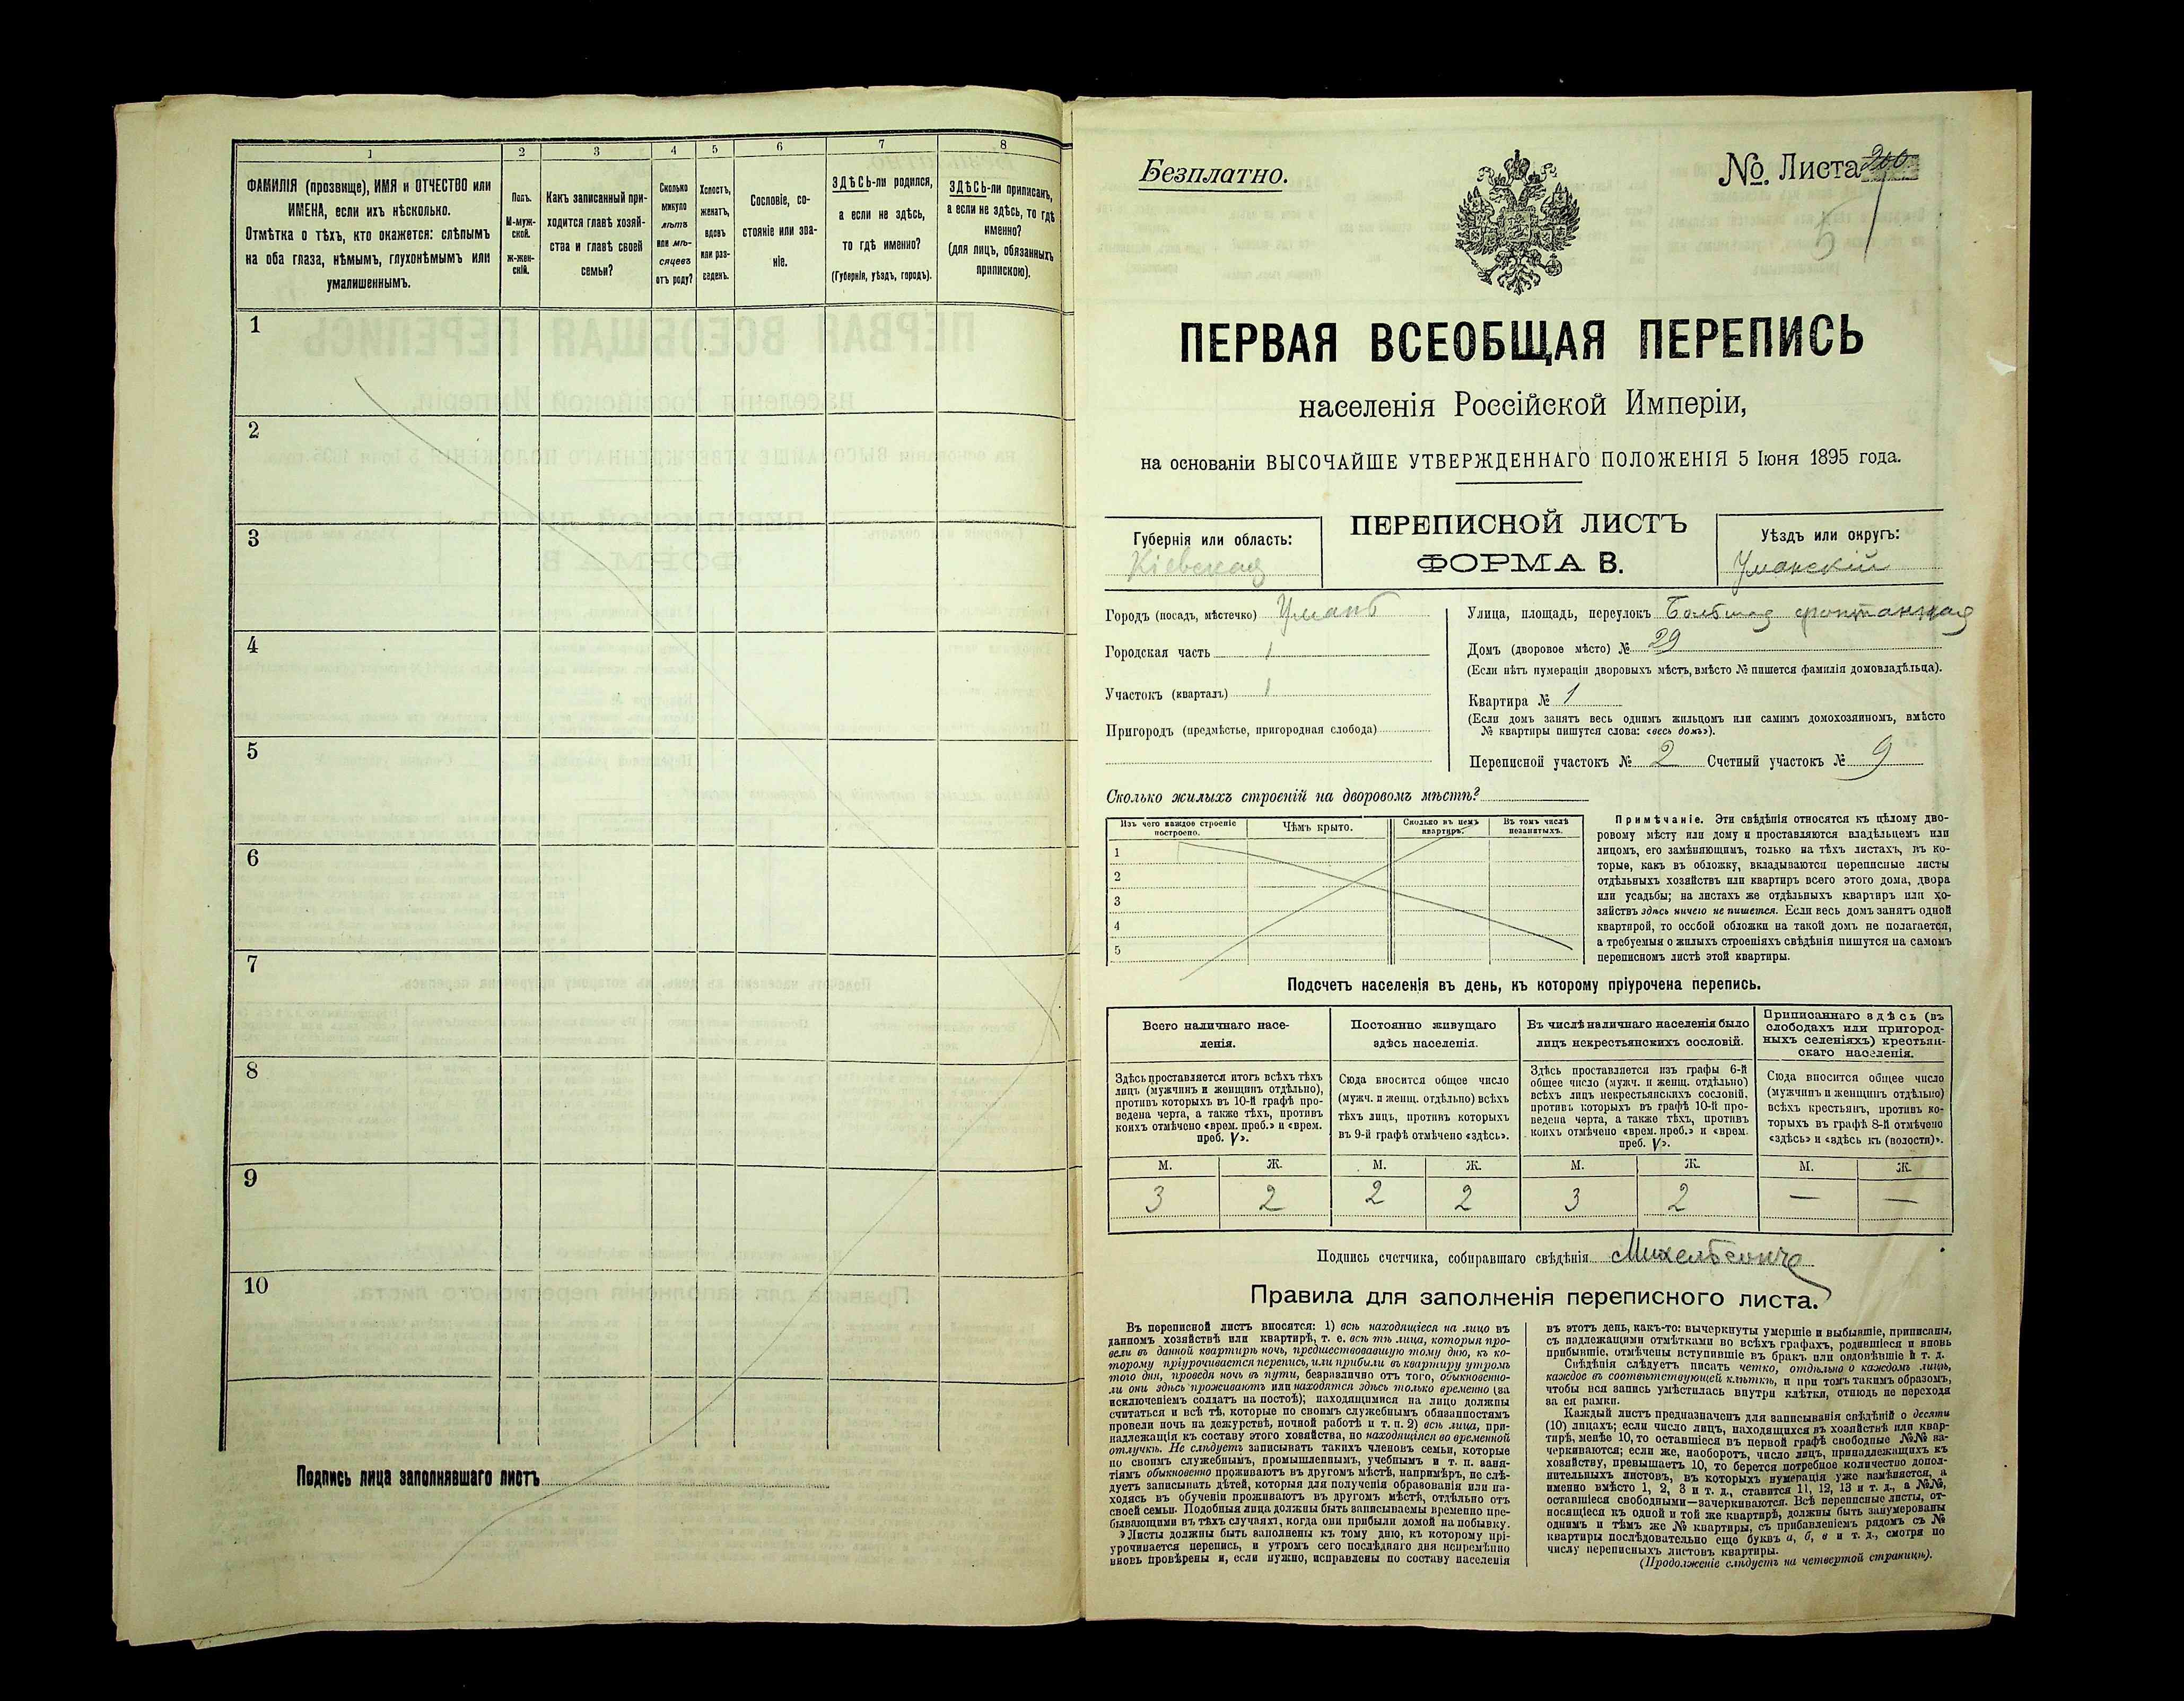 1 2 3 4 5 6 7 8
ФАМИЛІЯ (прозвище), ИМЯ и ОТЧЕСТВО или
ИМЕНА, если ихъ нѣсколько.
Отмѣтка о тѣхъ, кто окажется: слѣпымъ
на оба глаза, нѣмымъ, глухонѣмымъ или
умалишеннымъ.
Полъ.
М-муж-
ской.
Ж-жен-
скій.
Какъ записанный при-
ходится главѣ хозяй-
ства и главѣ своей
семьи?
Сколько
минуло
лѣтъ
или мѣ-
сяцевъ
отъ роду?
Холостъ,
женатъ,
вдовъ
или раз-
веденъ.
Сословіе, со-
стояніе или зва-
ніе.
ЗДѢСЬ-ли родился,
а если не здѣсь,
то гдѣ именно?
(Губернія, уѣздъ, городъ).
ЗДѢСЬ-ли приписанъ,
а если не здѣсь, то гдѣ
именно?
(для лицъ, обязанныхъ
припискою).
1
2
3
4
5
6
7
8
9
10
Подпись лица заполнявшаго листъ
Безплатно.
№ Листа
ПЕРВАЯ ВСЕОБЩАЯ ПЕРЕПИСЬ
населенія Россійской Имперіи,
на основаніи ВЫСОЧАЙШЕ УТВЕРЖДЕННАГО ПОЛОЖЕНІЯ 5 Іюня 1895 года.
Губернія или область:
Кіевская
ПЕРЕПИСНОЙ ЛИСТЪ
ФОРМА В.
Уѣздъ или округъ:
Уманскій
Городъ (посадъ, мѣстечко) Умань
Городская часть 1
Участокъ (кварталъ) 1
Пригородъ (предмѣстье, пригородная слобода)
Улица, площадь, переулокъ Большая фонтанная
Домъ (дворовое мѣсто) № 29
(Если нѣтъ нумераціи дворовыхъ мѣстъ, вмѣсто № пишется фамилія домовладѣльца).
Квартира № 1
(Если домъ занятъ весь однимъ жильцомъ или самимъ домохозяиномъ, вмѣсто
№ квартиры пишутся слова: «весь домъ»).
Переписной участокъ № 2 Счетный участокъ № 9
Сколько жилыхъ строеній на дворовомъ мѣстѣ?
Изъ чего каждое строеніе
построено.
Чѣмъ крыто.
Сколько въ немъ
квартиръ.
Въ томъ числѣ
незанятыхъ.
1
2
3
4
5
Примѣчаніе. Эти свѣдѣнія относятся къ цѣлому дво-
ровому мѣсту или дому и проставляются владѣльцемъ или
лицомъ, его замѣняющимъ, только на тѣхъ листахъ, въ ко-
торые, какъ въ обложку, вкладываются переписные листы
отдѣльныхъ хозяйствъ или квартиръ всего этого дома, двора
или усадьбы; на листахъ же отдѣльныхъ квартиръ или хо-
зяйствъ здѣсь ничего не пишется. Если весь домъ занятъ одной
квартирой, то особой обложки на такой домъ не полагается,
а требуемыя о жилыхъ строеніяхъ свѣдѣнія пишутся на самомъ
переписномъ листѣ этой квартиры.
Подсчетъ населенія въ день, къ которому пріурочена перепись.
Всего наличнаго насе-
ленія.
Постоянно живущаго
здѣсь населенія.
Въ числѣ наличнаго населенія было
лицъ некрестьянскихъ сословій.
Приписаннаго здѣсь (въ
слободахъ или пригород-
ныхъ селеніяхъ) крестьян-
скаго населенія.
Здѣсь проставляется итогъ всѣхъ тѣхъ
лицъ (мужчинъ и женщинъ отдѣльно),
противъ которыхъ въ 10-й графѣ про-
ведена черта, а также тѣхъ, противъ
коихъ отмѣчено «врем. преб.» и «врем.
преб. V».
Сюда вносится общее число
(мужч. и женщ. отдѣльно) всѣхъ
тѣхъ лицъ, противъ которыхъ
въ 9-й графѣ отмѣчено «здѣсь».
Здѣсь проставляется изъ графы 6-й
общее число (мужч. и женщ. отдѣльно)
всѣхъ лицъ некрестьянскихъ сословій,
противъ которыхъ въ графѣ 10-й про-
ведена черта, а также тѣхъ, противъ
коихъ отмѣчено «врем. преб.» и «врем.
преб. V».
Сюда вносится общее число
(мужчинъ и женщинъ отдѣльно)
всѣхъ крестьянъ, противъ ко-
торыхъ въ графѣ 8-й отмѣчено
«здѣсь» и «здѣсь къ (волости)».
М. Ж. М. Ж. М. Ж. М. Ж.
3 2 2 2 3 2 — —
Подпись счетчика, собиравшаго свѣдѣнія
Правила для заполненія переписного листа.
Въ переписной листъ вносятся: 1) всѣ находящіеся на лицо въ
данномъ хозяйствѣ или квартирѣ, т. е. всѣ тѣ лица, которыя про-
вели въ данной квартирѣ ночь, предшествовавшую тому дню, къ ко-
торому пріурочивается перепись, или прибыли въ квартиру утромъ
того дня, проведя ночь въ пути, безразлично отъ того, обыкновенно-
ли они здѣсь проживаютъ или находятся здѣсь только временно (за
исключеніемъ солдатъ на постоѣ); находящимися на лицо должны
считаться и всѣ тѣ, которые по своимъ служебнымъ обязанностямъ
провели ночь на дежурствѣ, ночной работѣ и т. п. 2) всѣ лица, при-
надлежащія къ составу этого хозяйства, но находящіяся во временной
отлучкѣ. Не слѣдуетъ записывать такихъ членовъ семьи, которые
по своимъ служебнымъ, промышленнымъ, учебнымъ и т. п. заня-
тіямъ обыкновенно проживаютъ въ другомъ мѣстѣ, напримѣръ, не слѣ-
дуетъ записывать дѣтей, которыя для полученія образованія или на-
ходясь въ обученіи проживаютъ въ другомъ мѣстѣ, отдѣльно отъ
своей семьи. Подобныя лица должны быть записываемы временно пре-
бывающими въ тѣхъ случаяхъ, когда они прибыли домой на побывку.
Листы должны быть заполнены къ тому дню, къ которому прі-
урочивается перепись, и утромъ сего послѣдняго дня непремѣнно
вновь провѣрены и, если нужно, исправлены по составу населенія
въ этотъ день, какъ-то: вычеркнуты умершіе и выбывшіе, приписаны,
съ надлежащими отмѣтками во всѣхъ графахъ, родившіеся и вновь
прибывшіе, отмѣчены вступившіе въ бракъ или овдовѣвшіе и т. д.
Свѣдѣнія слѣдуетъ писать четко, отдѣльно о каждомъ лицѣ,
каждое въ соотвѣтствующей клѣткѣ, и при томъ такимъ образомъ,
чтобы вся запись умѣстилась внутри клѣтки, отнюдь не переходя
за ея рамки.
Каждый листъ предназначенъ для записыванія свѣдѣній о десяти
(10) лицахъ; если число лицъ, находящихся въ хозяйствѣ или квар-
тирѣ, менѣе 10, то оставшіеся въ первой графѣ свободные №№ за-
черкиваются; если же, наоборотъ, число лицъ, принадлежащихъ къ
хозяйству, превышаетъ 10, то берется потребное количество допол-
нительныхъ листовъ, въ которыхъ нумерація уже измѣняется, а
именно вмѣсто 1, 2, 3 и т. д., ставится 11, 12, 13 и т. д., а №№,
оставшіеся свободными—зачеркиваются. Всѣ переписные листы, от-
носящіеся къ одной и той же квартирѣ, должны быть занумерованы
однимъ и тѣмъ же № квартиры, съ прибавленіемъ рядомъ съ №
квартиры послѣдовательно еще буквъ а, б, в и т. д., смотря по
числу переписныхъ листовъ квартиры.
(Продолженіе слѣдуетъ на четвертой страницѣ).